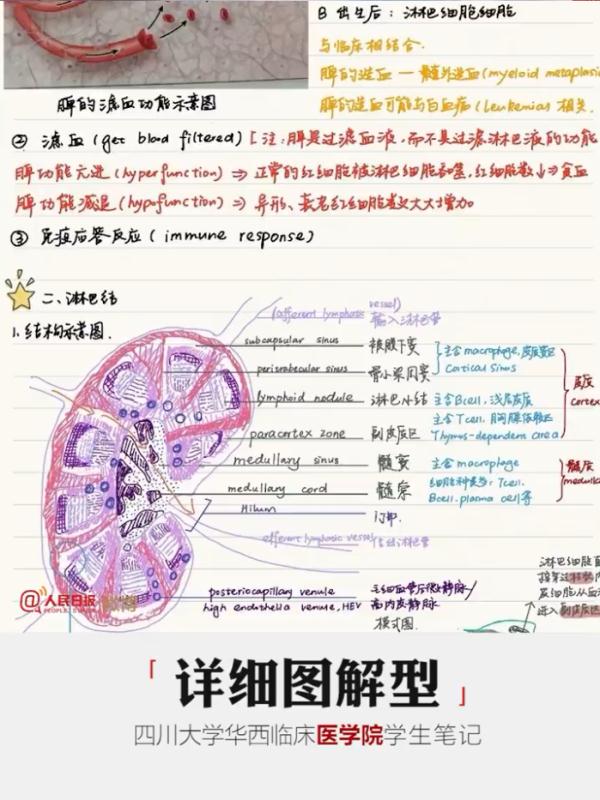 B 出生后：淋巴细胞细胞
与临床相结合.
脾的造血 — 髓外造血(myeloid metaplasia
脾的造血可能与白血病(leukemias 相关.
脾的滤血功能示意图
② 滤血(get blood filtered) [注:脾是过滤血液,而不是过滤淋巴液的功能
脾功能亢进(hyperfunction) ⇒ 正常的红细胞被淋巴细胞吞噬,红细胞数↓⇒贫血
脾功能减退(hypofunction) ⇒ 异形、衰老红细胞数大大增加。
③ 免疫应答反应(immune response)
二、淋巴结
1.结构示意图.
(afferent lymphatic vessel)
输入淋巴管
subcapsular sinus 被膜下窦
peritrabecular sinus 骨小梁周窦
主含macrophage,皮质窦区
Cortical Sinus
lymphoid nodule 淋巴小结 主含Bcell,浅层皮质
皮质
cortex
paracortex zone 副皮质区
主含Tcell,胸腺依赖区
Thymus-dependent area
medullary sinus 髓窦 主含macrophage
髓质
medullary cord 髓索
Tcell.
Bcell.plasma cell等
Hilum 门部.
efferent lymphatic vessel
posteriocapillary venule 毛细血管后微静脉/
high endothelia venule,HEV 高内皮静脉
模式图.
@人民日报
PEOPLE'S DAILY
「 详细图解型 」
四川大学华西临床医学院学生笔记